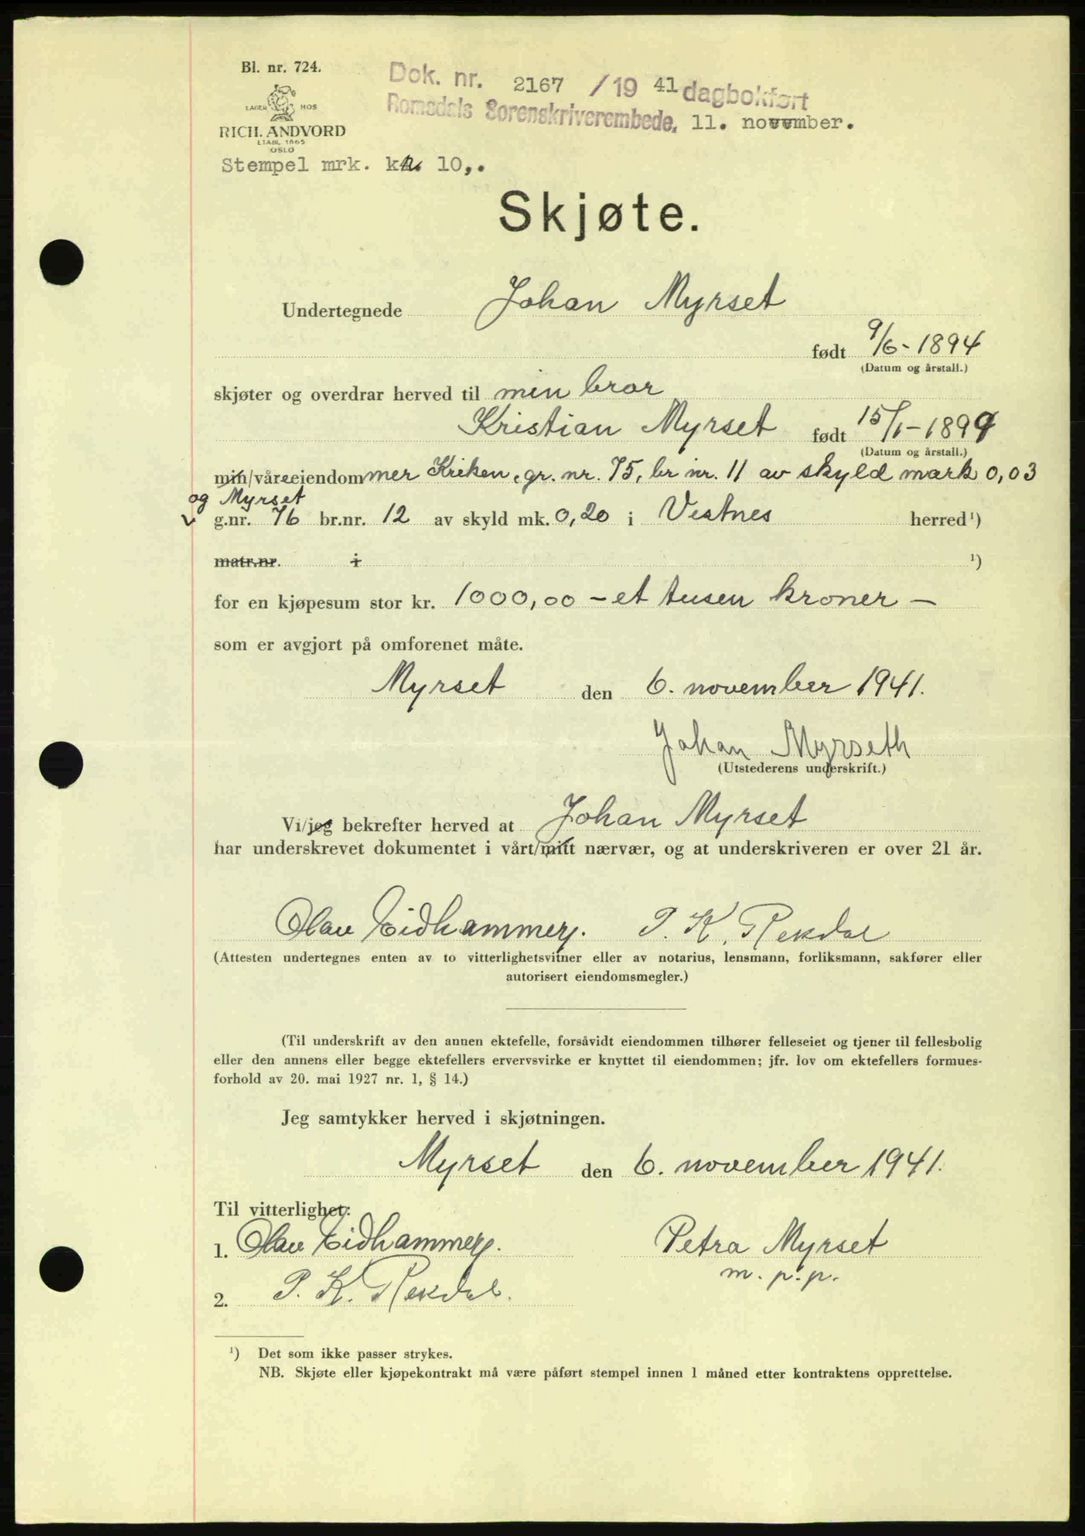 Bl. nr. 724.
LAGER HOS
RICH. ANDVORD
ETABL. 1865
OSLO
Dok. nr. 2167 /19 41 dagbokført
Romsdals Sorenskriverembede, 11. november.
Stempel mrk. kr 10,.
Skjøte.
Undertegnede Johan Myrset
født 9/6-1894
(Datum og årstall.)
skjøter og overdrar herved til min bror
Kristian Myrset født 15/1-1899
(Datum og årstall.)
min/våre eiendommer Kriken, gr. nr. 75, br nr. 11 av skyld mark 0,03
og Myrset
g.nr. 76 br.nr. 12 av skyld mk. 0,20 i Vestnes herred ¹)
matr.nr. i ¹)
for en kjøpesum stor kr. 1000,00 - et tusen kroner -
som er avgjort på omforenet måte.
Myrset den 6. november 1941.
Johan Myrseth
(Utstederens underskrift.)
Vi/jeg bekrefter herved at Johan Myrset
har underskrevet dokumentet i vårt/mitt nærvær, og at underskriveren er over 21 år.
Olav Eidhammer. P. K. Rekdal
(Attesten undertegnes enten av to vitterlighetsvitner eller av notarius, lensmann, forliksmann, sakfører eller
autorisert eiendomsmegler.)
(Til underskrift av den annen ektefelle, forsåvidt eiendommen tilhører felleseiet og tjener til fellesbolig
eller den annens eller begge ektefellers ervervsvirke er knyttet til eiendommen; jfr. lov om ektefellers formues-
forhold av 20. mai 1927 nr. 1, § 14.)
Jeg samtykker herved i skjøtningen.
Myrset den 6. november 1941.
Til vitterlighet:
1. Olav Eidhammer. Petra Myrset
m. p. p.
2. P. K. Rekdal.
¹) Det som ikke passer strykes.
NB. Skjøte eller kjøpekontrakt må være påført stempel innen 1 måned etter kontraktens opprettelse.